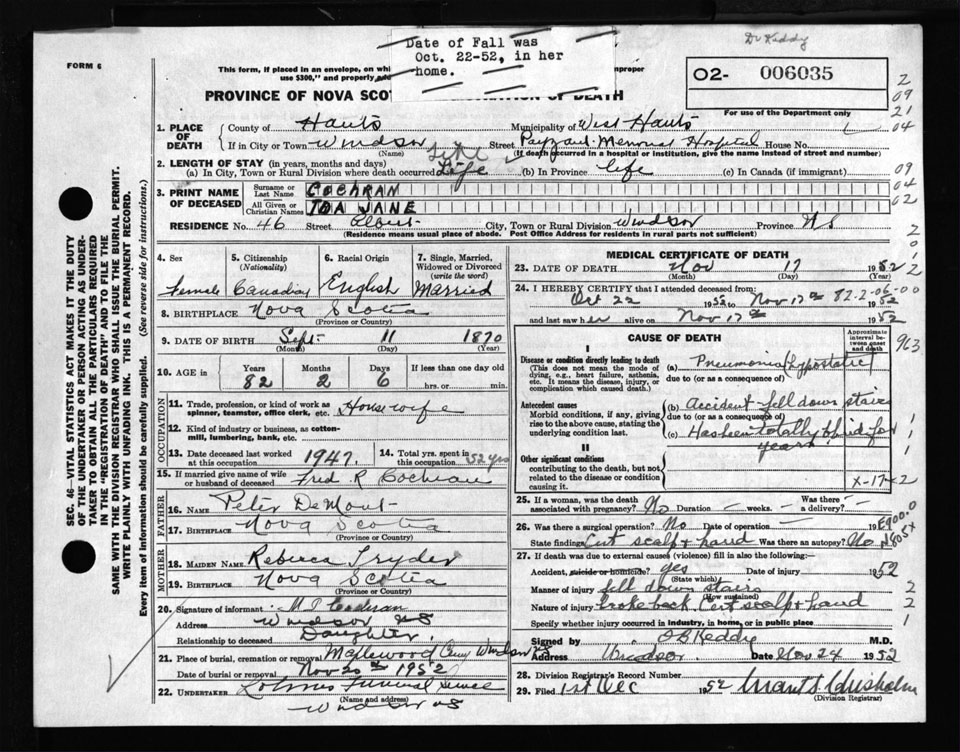 Dr Keddy
Date of Fall was
Oct. 22-52, in her
home.
FORM 6
This form, if placed in an envelope, on whi improper
use $300," and properly add
O2- 006035
For use of the Department only
PROVINCE OF NOVA SCOT RATION OF DEATH
1. PLACE OF DEATH County of Hants Municipality of West Hants
If in City or Town Windsor Street Payzant Memorial Hospital House No.
(Name) (If death occurred in a hospital or institution, give the name instead of street and number)
2. LENGTH OF STAY (in years, months and days)
(a) In City, Town or Rural Division where death occurred Life (b) In Province life (c) In Canada (if immigrant)
3. PRINT NAME OF DECEASED Surname or Last Name COCHRAN
All Given or Christian Names IDA JANE
RESIDENCE No. 46 Street Albert City, Town or Rural Division Windsor Province NS
(Residence means usual place of abode. Post Office Address for residents in rural parts not sufficient)
SEC. 46—VITAL STATISTICS ACT MAKES IT THE DUTY
OF THE UNDERTAKER OR PERSON ACTING AS UNDER-
TAKER TO OBTAIN ALL THE PARTICULARS REQUIRED
IN THE "REGISTRATION OF DEATH" AND TO FILE THE
SAME WITH THE DIVISION REGISTRAR WHO SHALL ISSUE THE BURIAL PERMIT.
WRITE PLAINLY WITH UNFADING INK. THIS IS A PERMANENT RECORD.
Every item of information should be carefully supplied. (See reverse side for instructions.)
4. Sex Female
5. Citizenship (Nationality) Canadian
6. Racial Origin English
7. Single, Married, Widowed or Divorced (write the word) Married
8. BIRTHPLACE Nova Scotia
(Province or Country)
9. DATE OF BIRTH Sept. 11 1870
(Month) (Day) (Year)
10. AGE in Years 82 Months 2 Days 6 If less than one day old
hrs. or min.
OCCUPATION
11. Trade, profession, or kind of work as
spinner, teamster, office clerk, etc. Housewife
12. Kind of industry or business, as cotton-
mill, lumbering, bank, etc.
13. Date deceased last worked at this occupation 1947. 14. Total yrs. spent in this occupation 52 yrs
15. If married give name of wife
or husband of deceased Fred R Cochran
FATHER
16. NAME Peter DeMont
17. BIRTHPLACE Nova Scotia
(Province or Country)
MOTHER
18. MAIDEN NAME Rebecca
19. BIRTHPLACE Nova Scotia
(Province or Country)
20. Signature of informant Cochran
Address Windsor NS
Relationship to deceased Daughter.
21. Place of burial, cremation or removal Maplewood Cem Windsor NS
Date of burial or removal Nov 20th 1952
22. UNDERTAKER Funeral Service
(Name and address)
Windsor NS
MEDICAL CERTIFICATE OF DEATH
23. DATE OF DEATH Nov 17 1952
(Month) (Day)
24. I HEREBY CERTIFY that I attended deceased from
Oct 22 1952 to Nov 17th 1952
82-2-06-00
and last saw her alive on Nov 17th 1952
CAUSE OF DEATH
Approximate interval between onset and death
I
Disease or condition directly leading to death
(This does not mean the mode of
dying, e.g., heart failure, asthenia,
etc. It means the disease, injury, or
complication which caused death.)
(a) Pneumonia (hypostatic)
due to (or as a consequence of)
Antecedent causes
Morbid conditions, if any, giving
rise to the above cause, stating the
underlying condition last.
(b) Accident - fell down stairs
due to (or as a consequence of)
(c) Has been totally blind for
years
II
Other significant conditions
contributing to the death, but not
related to the disease or condition
causing it.
X-17-2
25. If a woman, was the death associated with pregnancy? No Duration — weeks. Was there a delivery? —
26. Was there a surgical operation? No Date of operation — 19
State findings Cut scalp & hand Was there an autopsy? No
E900.0
N805X
27. If death was due to external causes (violence) fill in also the following:—
Accident, suicide or homicide? yes Date of injury 1952
(State which)
Manner of injury fell down stairs
(How sustained)
Nature of injury broke back. Cut scalp & hand
Specify whether injury occurred in industry, in home, or in public place
Signed by Keddy M.D.
Address Windsor. Date Nov 24 1952
28. Division Registrar's Record Number
29. Filed 1st Dec 1952 Grant S. Chisholm
(Division Registrar)
2
09
21
04
09
04
02
963